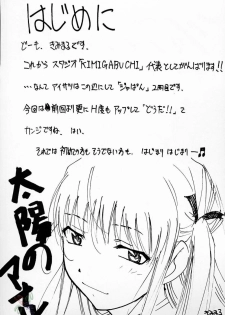 はじめに
どーも、きみまるです。
これから スタジオ「KIMIGABUCHI」代表としてがんばります!!
…なんて アイサツはこの辺にして「じゃぱん」2冊目です。
今回は前回より更に H度も アップして「どうだ!!」て
カンジですね。はい。
それでは 初めての方も そうでない方も はじまり はじまりー♫
太陽の